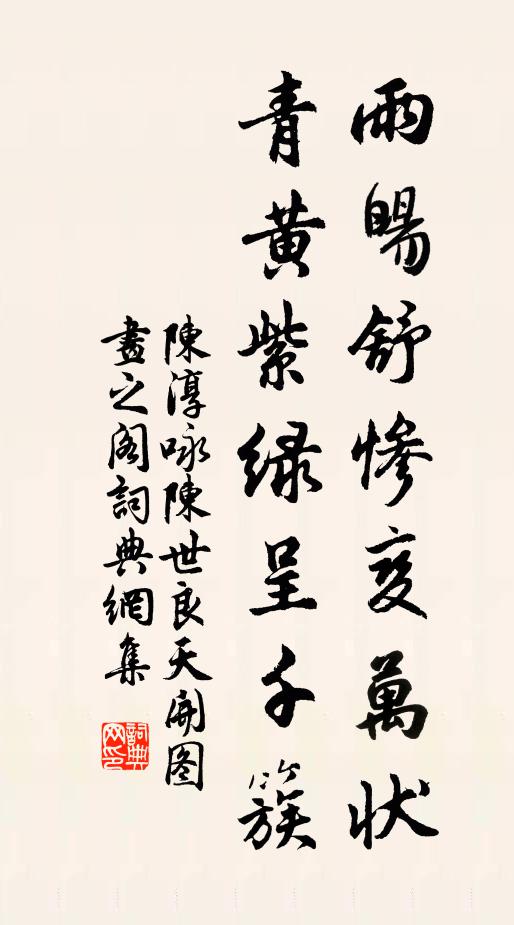 雨暘舒慘变萬状
青黄紫绿呈千簇
陳淳咏陳世良天開图
畫之阁詞典網集
詞典网印